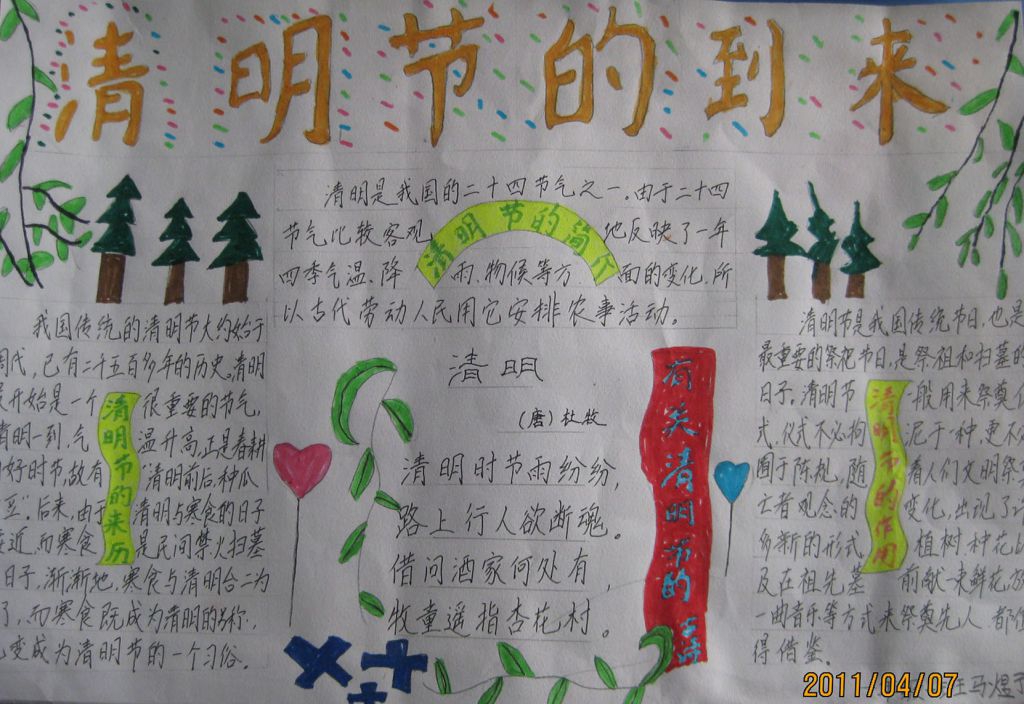 清明节的到来
清明是我国的二十四节气之一。由于二十四
节气比较客观地反映了一年
四季气温、降雨、物候等方面的变化,所
以古代劳动人民用它安排农事活动。
清明节的简介
我国传统的清明节大约始于
周代,已有二十五百多年的历史。清明
开始是一个很重要的节气,
清明一到,气温升高,正是春耕
好时节,故有“清明前后,种瓜
豆”。后来,由于清明与寒食的日子
近,而寒食是民间禁火扫墓
日子,渐渐地,寒食与清明合二为
了,而寒食既成为清明的
变成为清明节的一个习俗。
清明节的来历
清明
(唐)杜牧
清明时节雨纷纷,
路上行人欲断魂。
借问酒家何处有,
牧童遥指杏花村。
有关清明节的古诗
清明节是我国传统节日,也是
最重要的祭祀节日,是祭祖和扫墓的
日子。清明节一般用来祭奠
式,仪式不必拘泥于一种,更不
囿于陈规,随着人们文明祭
亡者观念的变化,出现了
多新的形式植树、种花
及在祖先墓前献一束鲜花,
一曲音乐等方式来祭奠先人,都
得借鉴。
清明节的作用
马煜
2011/04/07